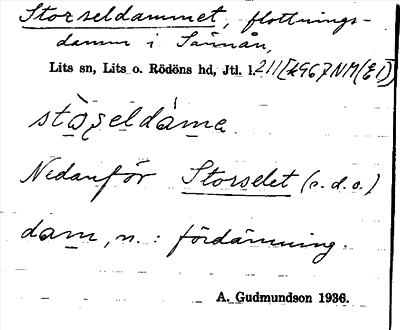 Storseldammet, flottnings-
damm i Sännån,
Lits sn, Lits o. Rödöns hd, Jtl. l. 211
stòșeldáme
Nedanför Storselet (s. d. o.)
dam, n. : fördämning.
A. Gudmundson 1936.